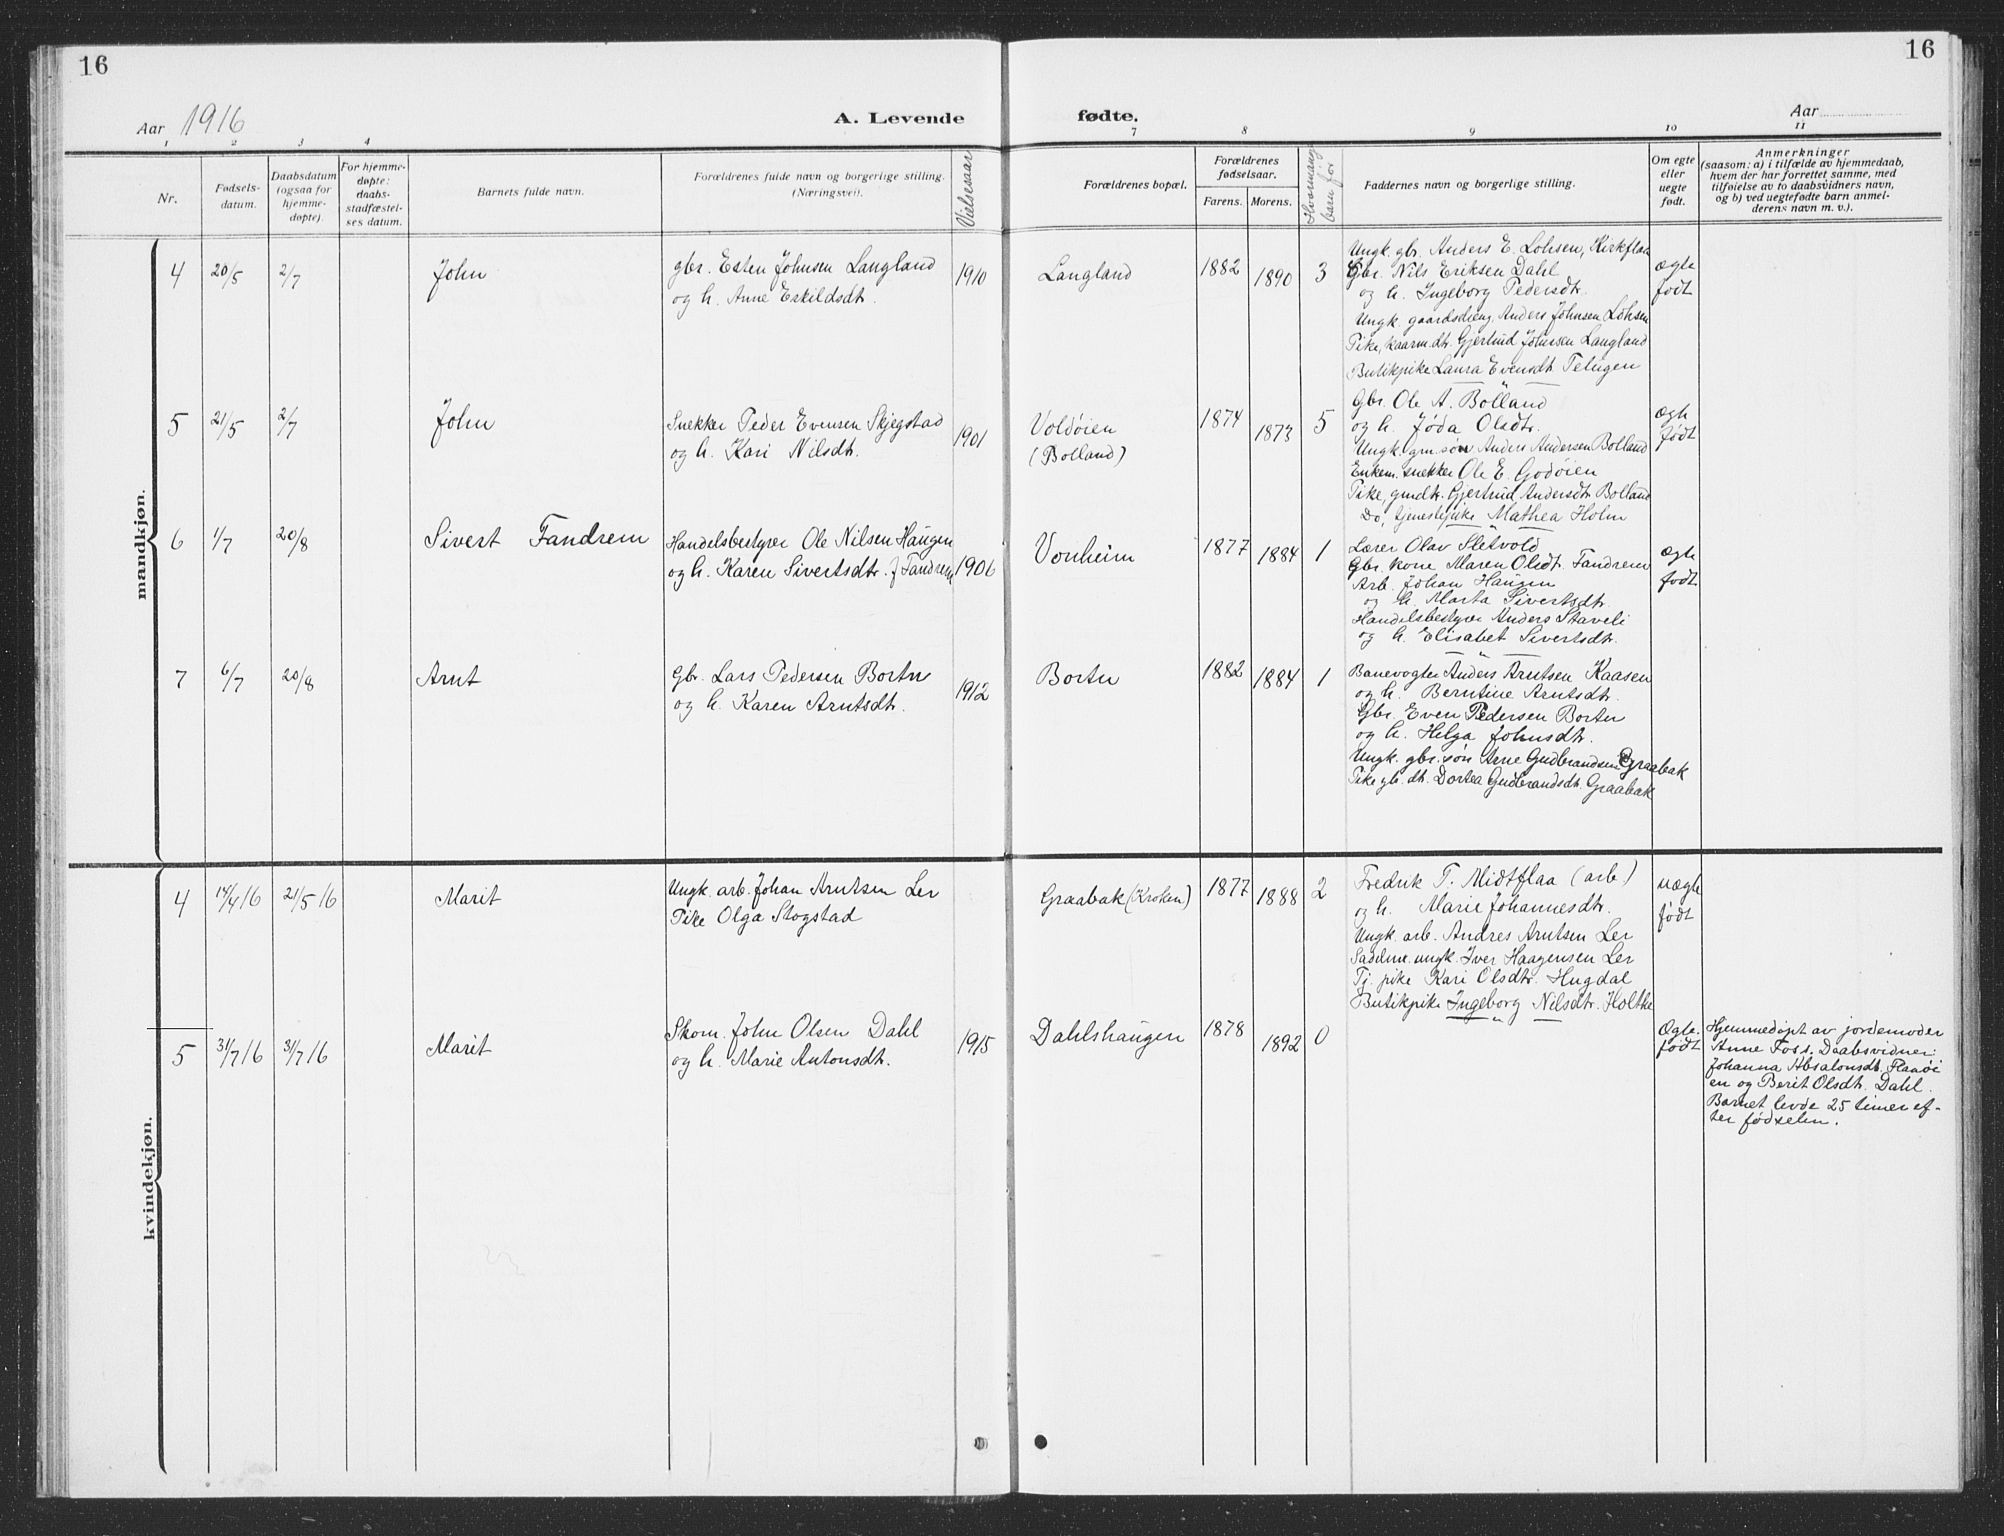 16
16
Aar 1916
A. Levende
fødte.
Aar
1 2 3 4
7 8 9 10 11
Nr.
Fødsels-
datum.
Daabsdatum
(ogsaa for
hjemme-
døpte).
For hjemme-
døpte:
daabs-
stadfæstel-
ses datum.
Barnets fulde navn.
Forældrenes fulde navn og borgerlige stilling.
(Næringsvei).
Vielsesaar
Forældrenes bopæl.
Forældrenes
fødselsaar.
Farens. Morens.
Hvormange
barn før
Faddernes navn og borgerlige stilling.
Om egte
eller
uegte
født.
Anmerkninger
(saasom: a) i tilfælde av hjemmedaab,
hvem der har forrettet samme, med
tilføielse av to daabsvidners navn,
og b) ved uegtefødte barn anmel-
derens navn m. v.).
mandkjøn.
4 20/5 2/7 John
gbr. Esten Johnsen Langland
og h. Anne Eskildsdtr.
1910
Langland
1882 1890 3
Ungk. gbr. Anders E. Lohsen, Kirkflaa
Gbr. Nils Eriksen Dahl
og h. Ingeborg Pedersdtr.
Ungk. gaardsdreng. Anders Johnsen Lohsen
Pike, kaarm.dtr. Gjertrud Johnsen Langland
Butikpike Laura Evensdtr. Telugen
ægte
født
5 21/5 2/7 John
Snekker Peder Evensen Skjegstad
og h. Kari Nilsdtr.
1901
Voldøien
(Bolland)
1874 1873 5
Gbr. Ole A. Bolland
og h. Jøda Olsdtr.
Ungk. gm. søn Anders Andersen Bolland
Enkem. snekker Ole E. Godøien
Pike, gmdtr. Gjertrud Andersdtr. Bolland
Do, tjenestepike Mathea Holm
ægte
født
6 1/7 20/8 Sivert Fandrem
Handelsbestyrer Ole Nilsen Haugen
og h. Karen Sivertsdtr. f Fandrem
1906
Vonheim
1877 1884 1
Lærer Olav Sletvold
Gbr. kone Maren Olsdtr. Fandrem
Arb. Johan Haugen
og h. Marta Sivertsdtr.
Handelsbestyrer Anders Staveli
og h. Elisabet Sivertsdtr.
ægte
født
7 6/7 20/8 Arnt
Gbr. Lars Pedersen Bortn
og h. Karen Arntsdtr.
1912
Bortn
1882 1884 1
Banevogter Anders Arntsen Kaasen
og h. Berntine Arntsdtr.
Gbr. Even Pedersen Bortn
og h. Helga Johnsdtr.
Ungk. gbr. søn Arne Gudbrandsen Graabak
Pike gb. dtr. Dortea Gudbrandsdtr. Graabak
kvindekjøn.
4 14/4 16 21/5 16 Marit
Ungk. arb. Johan Arntsen Ler
Pike Olga Stogstad
Graabak (Kroken)
1877 1888 2
Fredrik T. Midtflaa (arb)
og h. Marie Johannesdtr.
Ungk. arb. Andres Arntsen Ler
Sadelm. ungk. Iver Haagensen Ler
Tj. pike Kari Olsdtr. Hugdal
Butikpike Ingeborg Nilsdtr. Holthe
uægte
født
5 31/7 16 31/7 16 Marit
Skom. John Olsen Dahl
og h. Marie Antonsdtr.
1915
Dahlshaugen
1878 1892 0
Ægte
født
Hjemmedøpt av jordemoder
Anne Foss. Daabsvidner:
Johanna Absalonsdtr. Flaaøi
en og Berit Olsdtr. Dahl.
Barnet levde 25 timer ef-
ter fødselen.